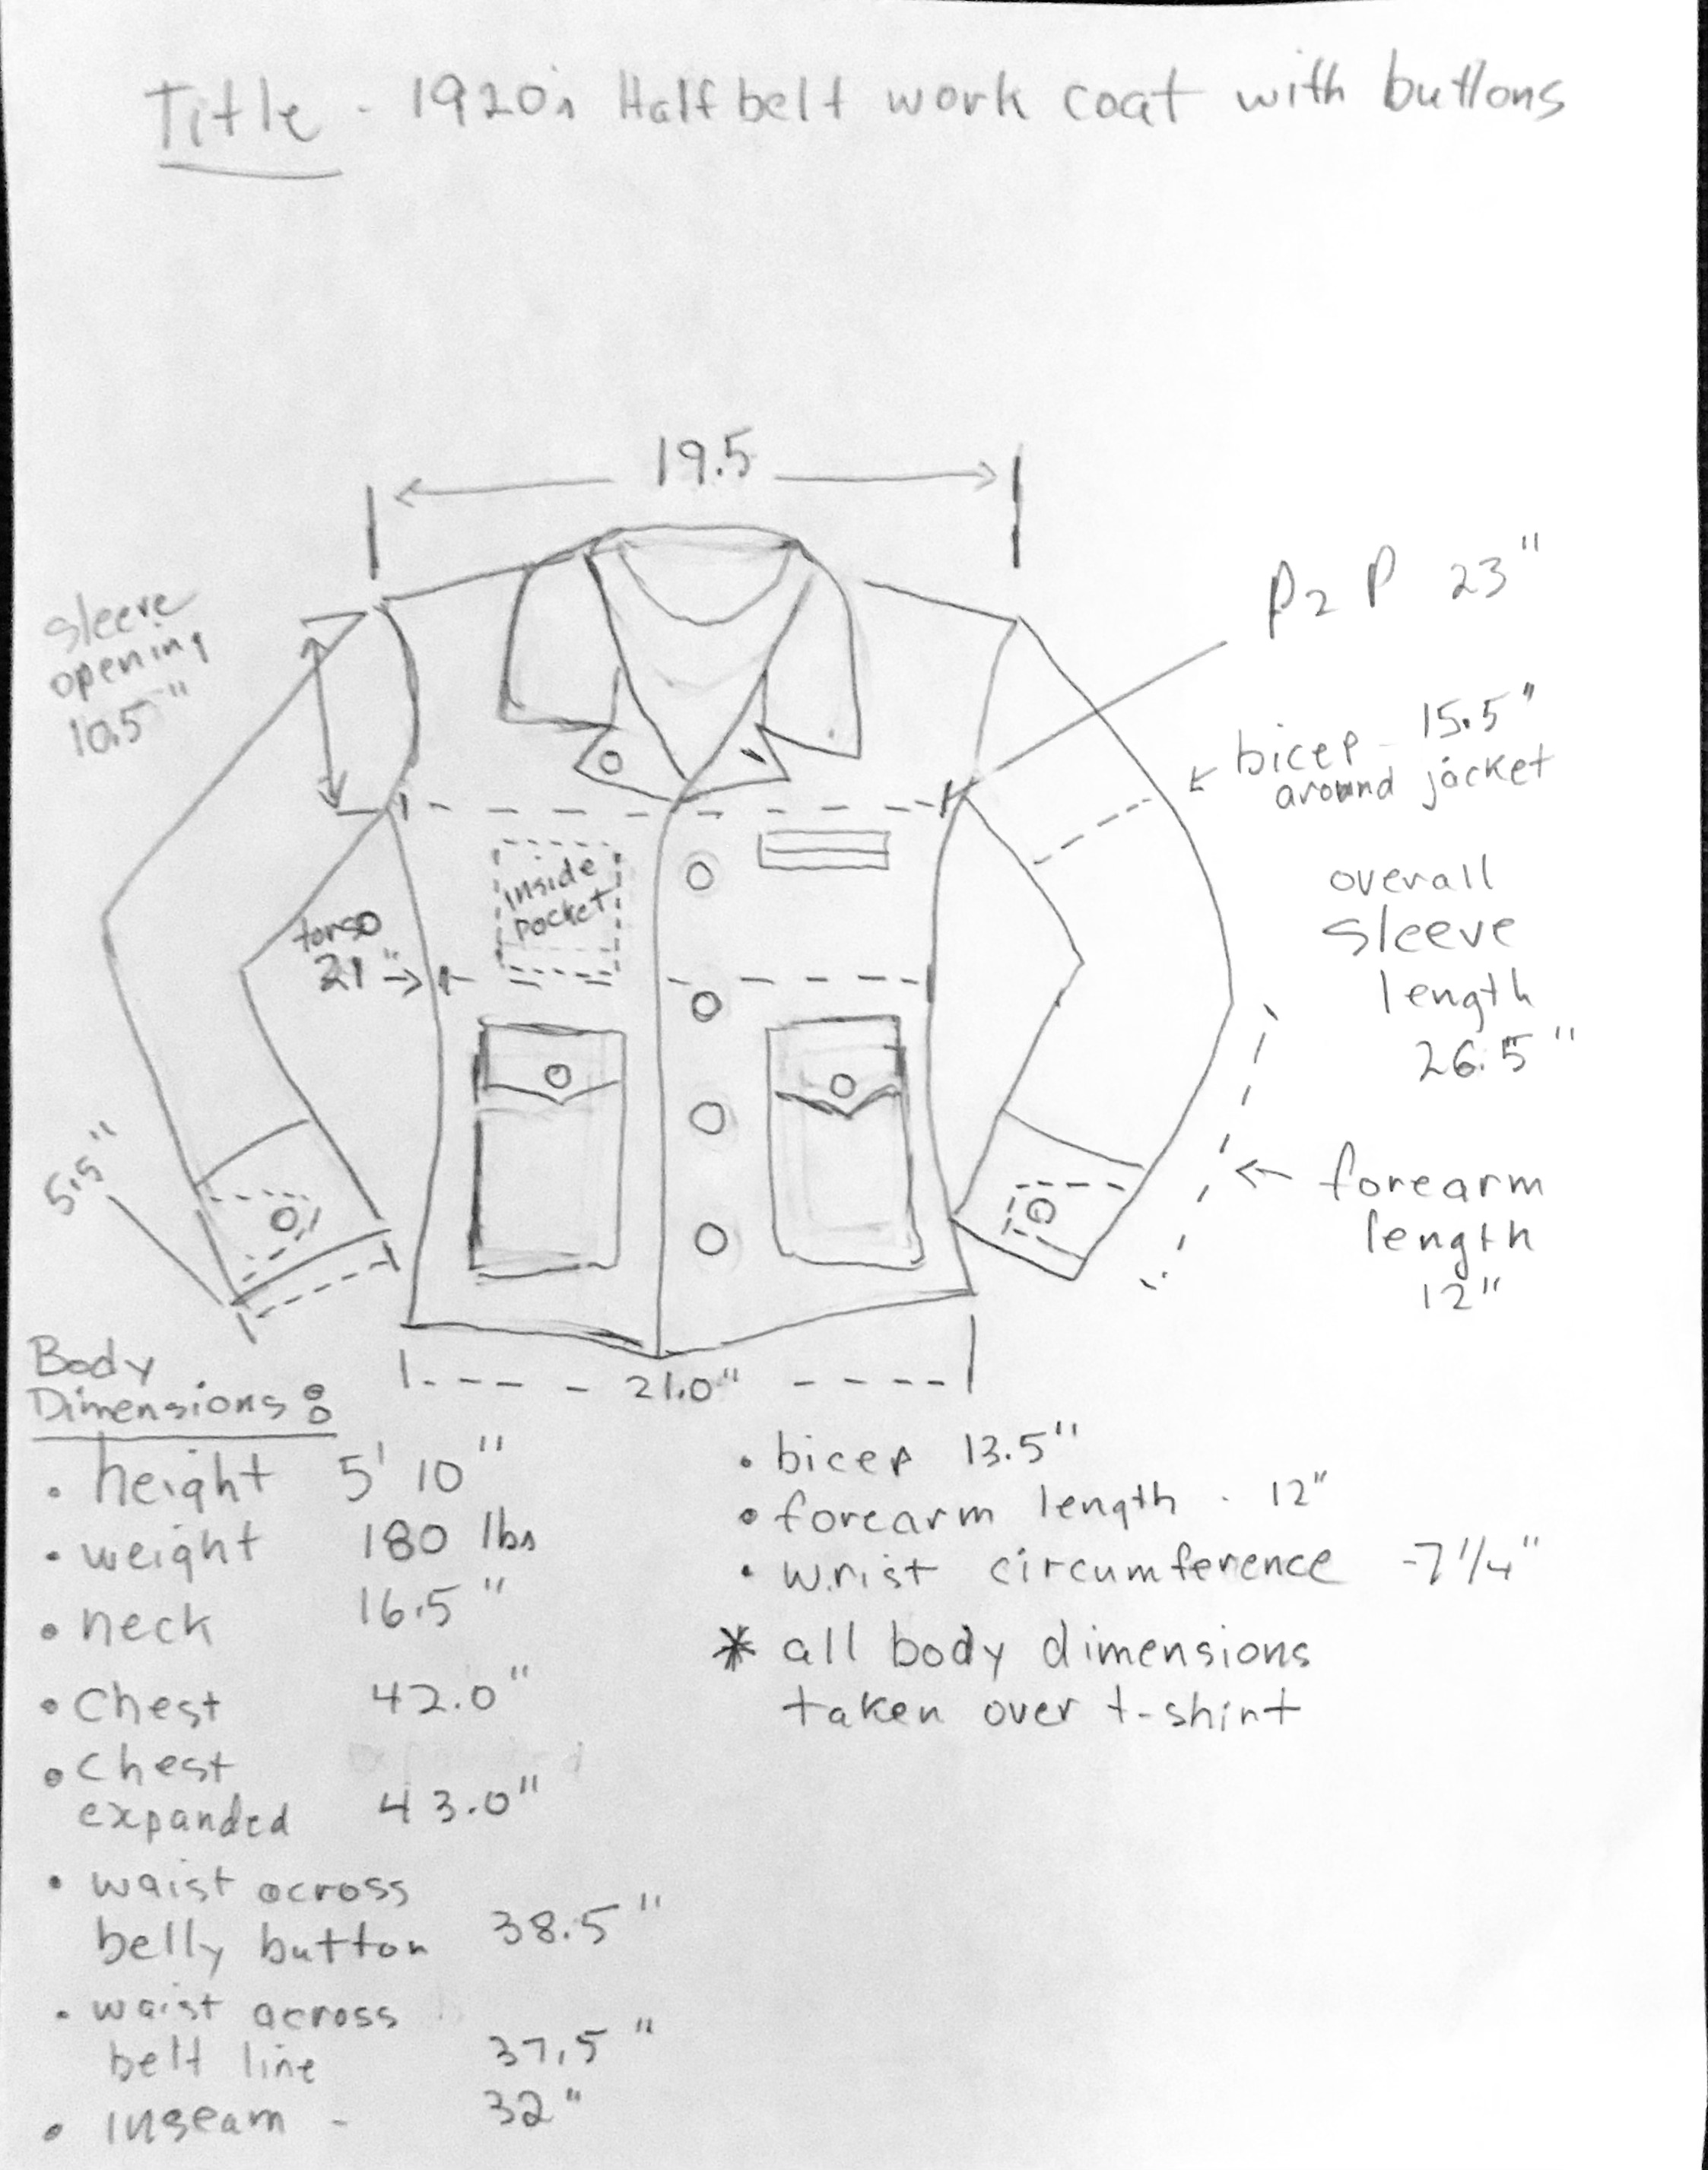 Title - 1920's Half belt work coat with buttons
19.5
P2P 23"
sleeve
opening
10.5"
bicep - 15.5"
around jacket
inside
pocket
overall
sleeve
length
26.5"
torso
21"
5.5"
forearm
length
12"
21.0"
Body
Dimensions:
• height 5' 10"
• weight 180 lbs
• neck 16.5"
• Chest 42.0"
• Chest
expanded 43.0"
• waist across
belly button 38.5"
• waist across
belt line 37.5"
• Inseam - 32"
• bicep 13.5"
• forearm length - 12"
• wrist circumference - 7 1/4"
* all body dimensions
taken over t-shirt